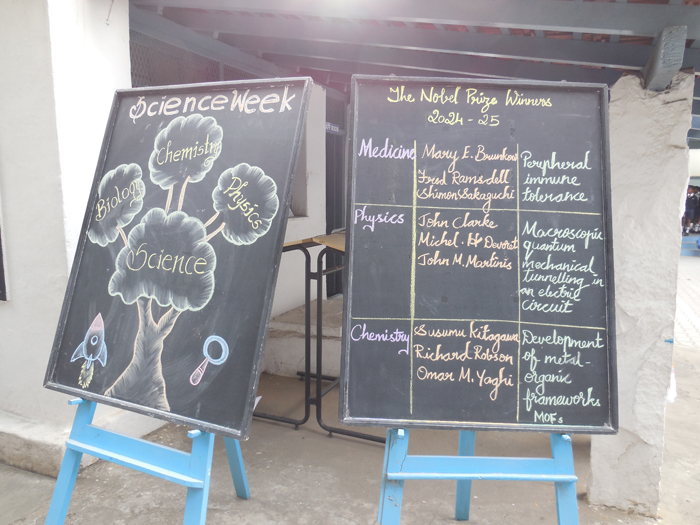 Science Week
Chemistry
Biology
Physics
Science
The Nobel Prize Winners
2024-25
Medicine
Mary E. Brunkow
Fred Ramsdell
Shimon Sakaguchi
Peripheral
immune
tolerance
Physics
John Clarke
Michel. H Devoret
John M. Martinis
Macroscopic
quantum
mechanical
tunnelling in
an electric
circuit
Chemistry
Susumu Kitagawa
Richard Robson
Omar M. Yaghi
Development
of metal-
organic
frameworks
MOFs